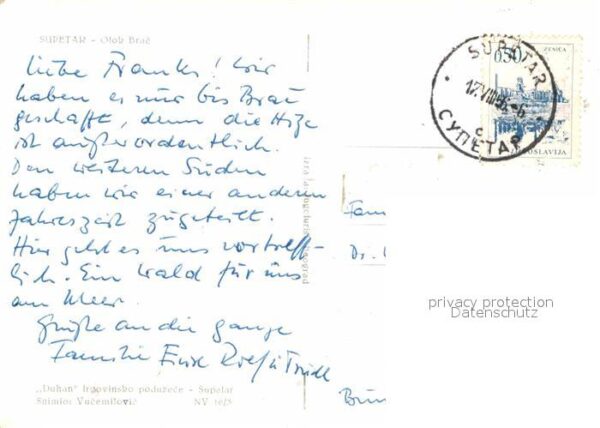 SUPETAR - Otok Brač
Liebe Franks! Wir
haben es nur bis Brač
geschafft, denn die Hitze
ist außerordentlich.
Den weiteren Süden
haben wir einer anderen
Jahreszeit zugeteilt.
Hier geht es uns vortreff-
lich. Ein Wald für uns
am Meer.
Grüße an die ganze
Familie
"Dukan" trgovinsko poduzeće - Supetar
Snimio: Vučemilović NV
SUPETAR
17.VIII
СУПЕТАР
c
ZENICA
JUGOSLAVIJA
Fam
Dr.
privacy protection
Datenschutz